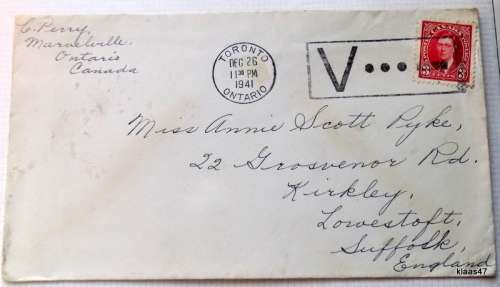 C. Perry
Marvelville.
Ontario
Canada
TORONTO
DEC 26
11 30 PM
1941
ONTARIO
V
CANADA
3
3
Miss Annie Scott Pyke,
22 Grosvenor Rd.
Kirkley,
Lowestoft,
Suffolk,
England
klaas47